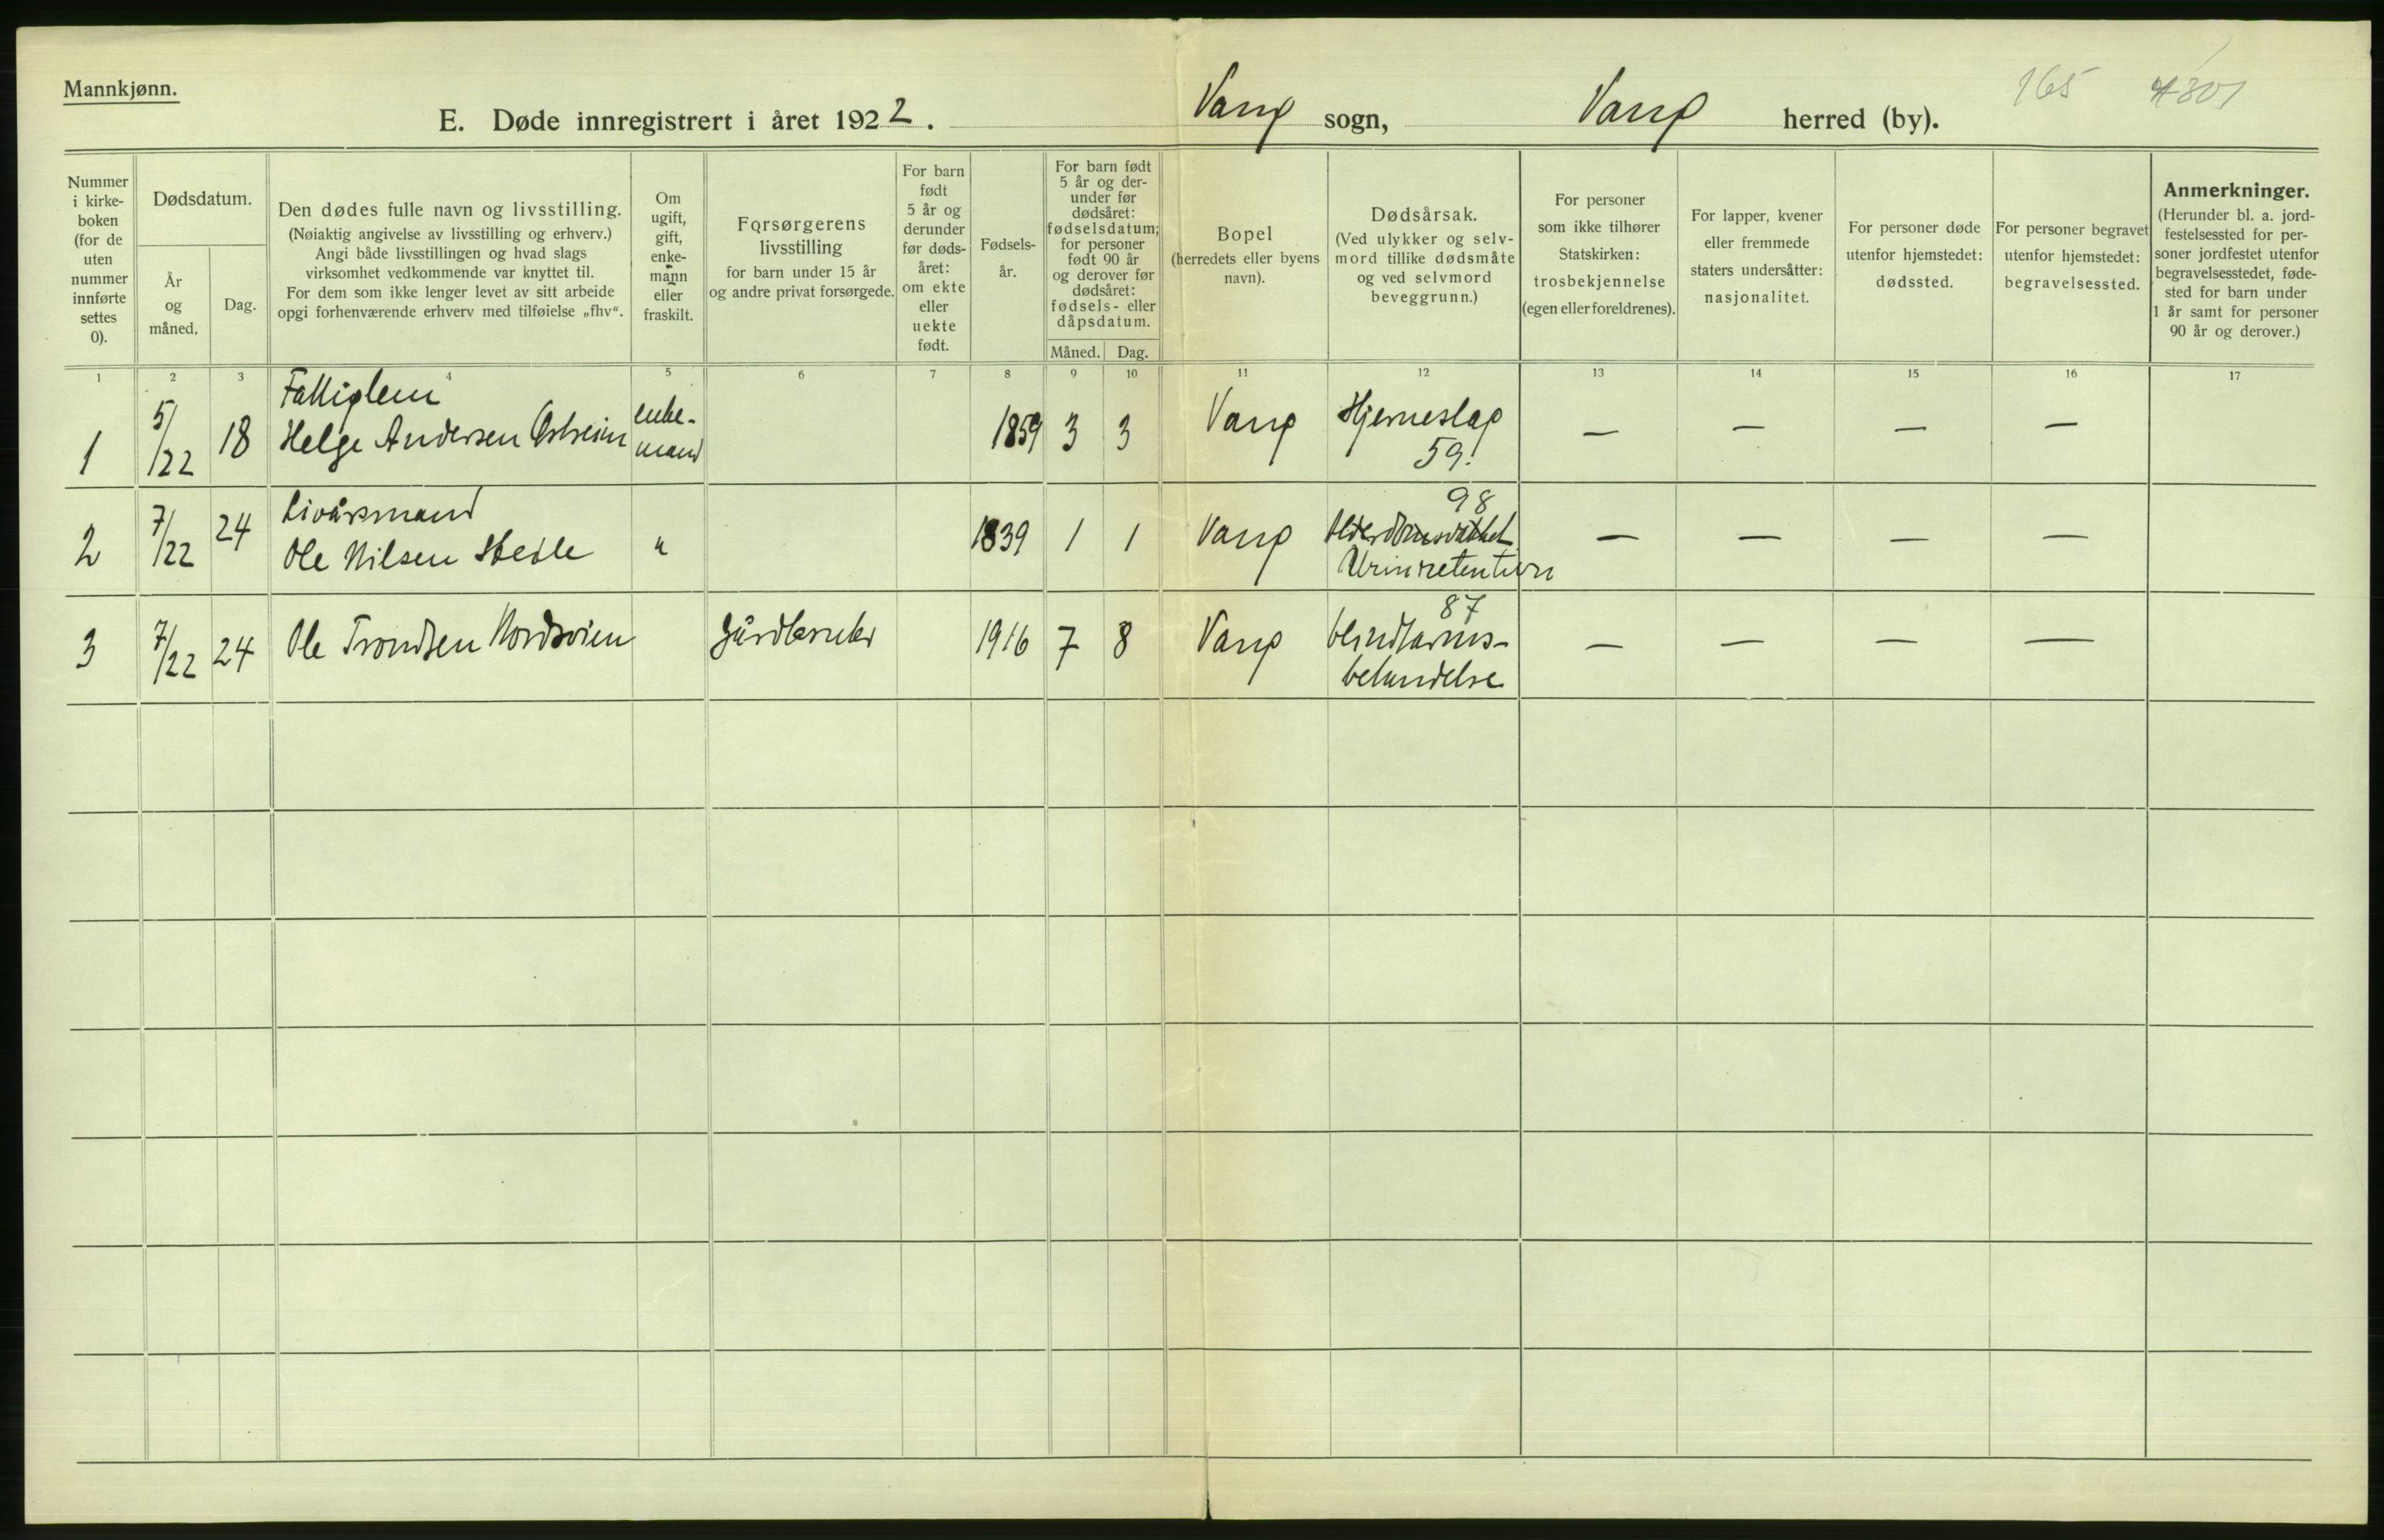 Mannkjønn.
E. Døde innregistrert i året 1922. Vang sogn, Vang herred (by).
165 4301
Nummer
i kirke-
boken
(for de
uten
nummer
innførte
settes
0).
Dødsdatum.
År
og
måned.
Dag.
Den dødes fulle navn og livsstilling.
(Nøiaktig angivelse av livsstilling og erhverv.)
Angi både livsstillingen og hvad slags
virksomhet vedkommende var knyttet til.
For dem som ikke lenger levet av sitt arbeide
opgi forhenværende erhverv med tilføielse „fhv“.
Om
ugift,
gift,
enke-
mann
eller
fraskilt.
Forsørgerens
livsstilling
for barn under 15 år
og andre privat forsørgede.
For barn
født
5 år og
derunder
før døds-
året:
om ekte
eller
uekte
født.
Fødsels-
år.
For barn født
5 år og der-
under før
dødsåret:
fødselsdatum;
for personer
født 90 år
og derover før
dødsåret:
fødsels- eller
dåpsdatum.
Måned. Dag.
Bopel
(herredets eller byens
navn).
Dødsårsak.
(Ved ulykker og selv-
mord tillike dødsmåte
og ved selvmord
beveggrunn.)
For personer
som ikke tilhører
Statskirken:
trosbekjennelse
(egen eller foreldrenes).
For lapper, kvener
eller fremmede
staters undersåtter:
nasjonalitet.
For personer døde
utenfor hjemstedet:
dødssted.
For personer begravet
utenfor hjemstedet:
begravelsessted.
Anmerkninger.
(Herunder bl. a. jord-
festelsessted for per-
soner jordfestet utenfor
begravelsesstedet,føde-
sted for barn under
1 år samt for personer
90 år og derover.)
1 2 3 4 5 6 7 8 9 10 11 12 13 14 15 16 17
Fattiglem
1 5/22 18 Helge Andersen enke-mand 1859 3 3 Vang Hjerneslag — — — —
59.
98
Livårsmand
2 7/22 24 Ole Nilsen " 1839 1 1 Vang — — — —
Urinretention
87
3 7/22 24 Ole Trondsen Nordsvien Gårdbruker 1916 7 8 Vang blindtarms- — — — —
behandelse